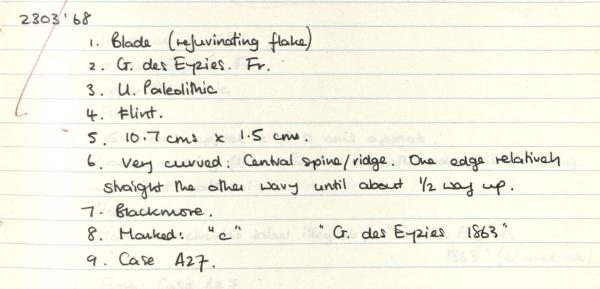 2303'68
1. Blade (rejuvinating flake)
2. G. des Eyzies. Fr.
3. U. Paleolithic
4. Flint.
5. 10.7 cms x 1.5 cms.
6. Very curved: Central spine/ridge. One edge relatively
straight the other wavy until about 1/2 way up.
7. Blackmore.
8. Marked: "c" "G. des Eyzies 1863"
9. Case A27.